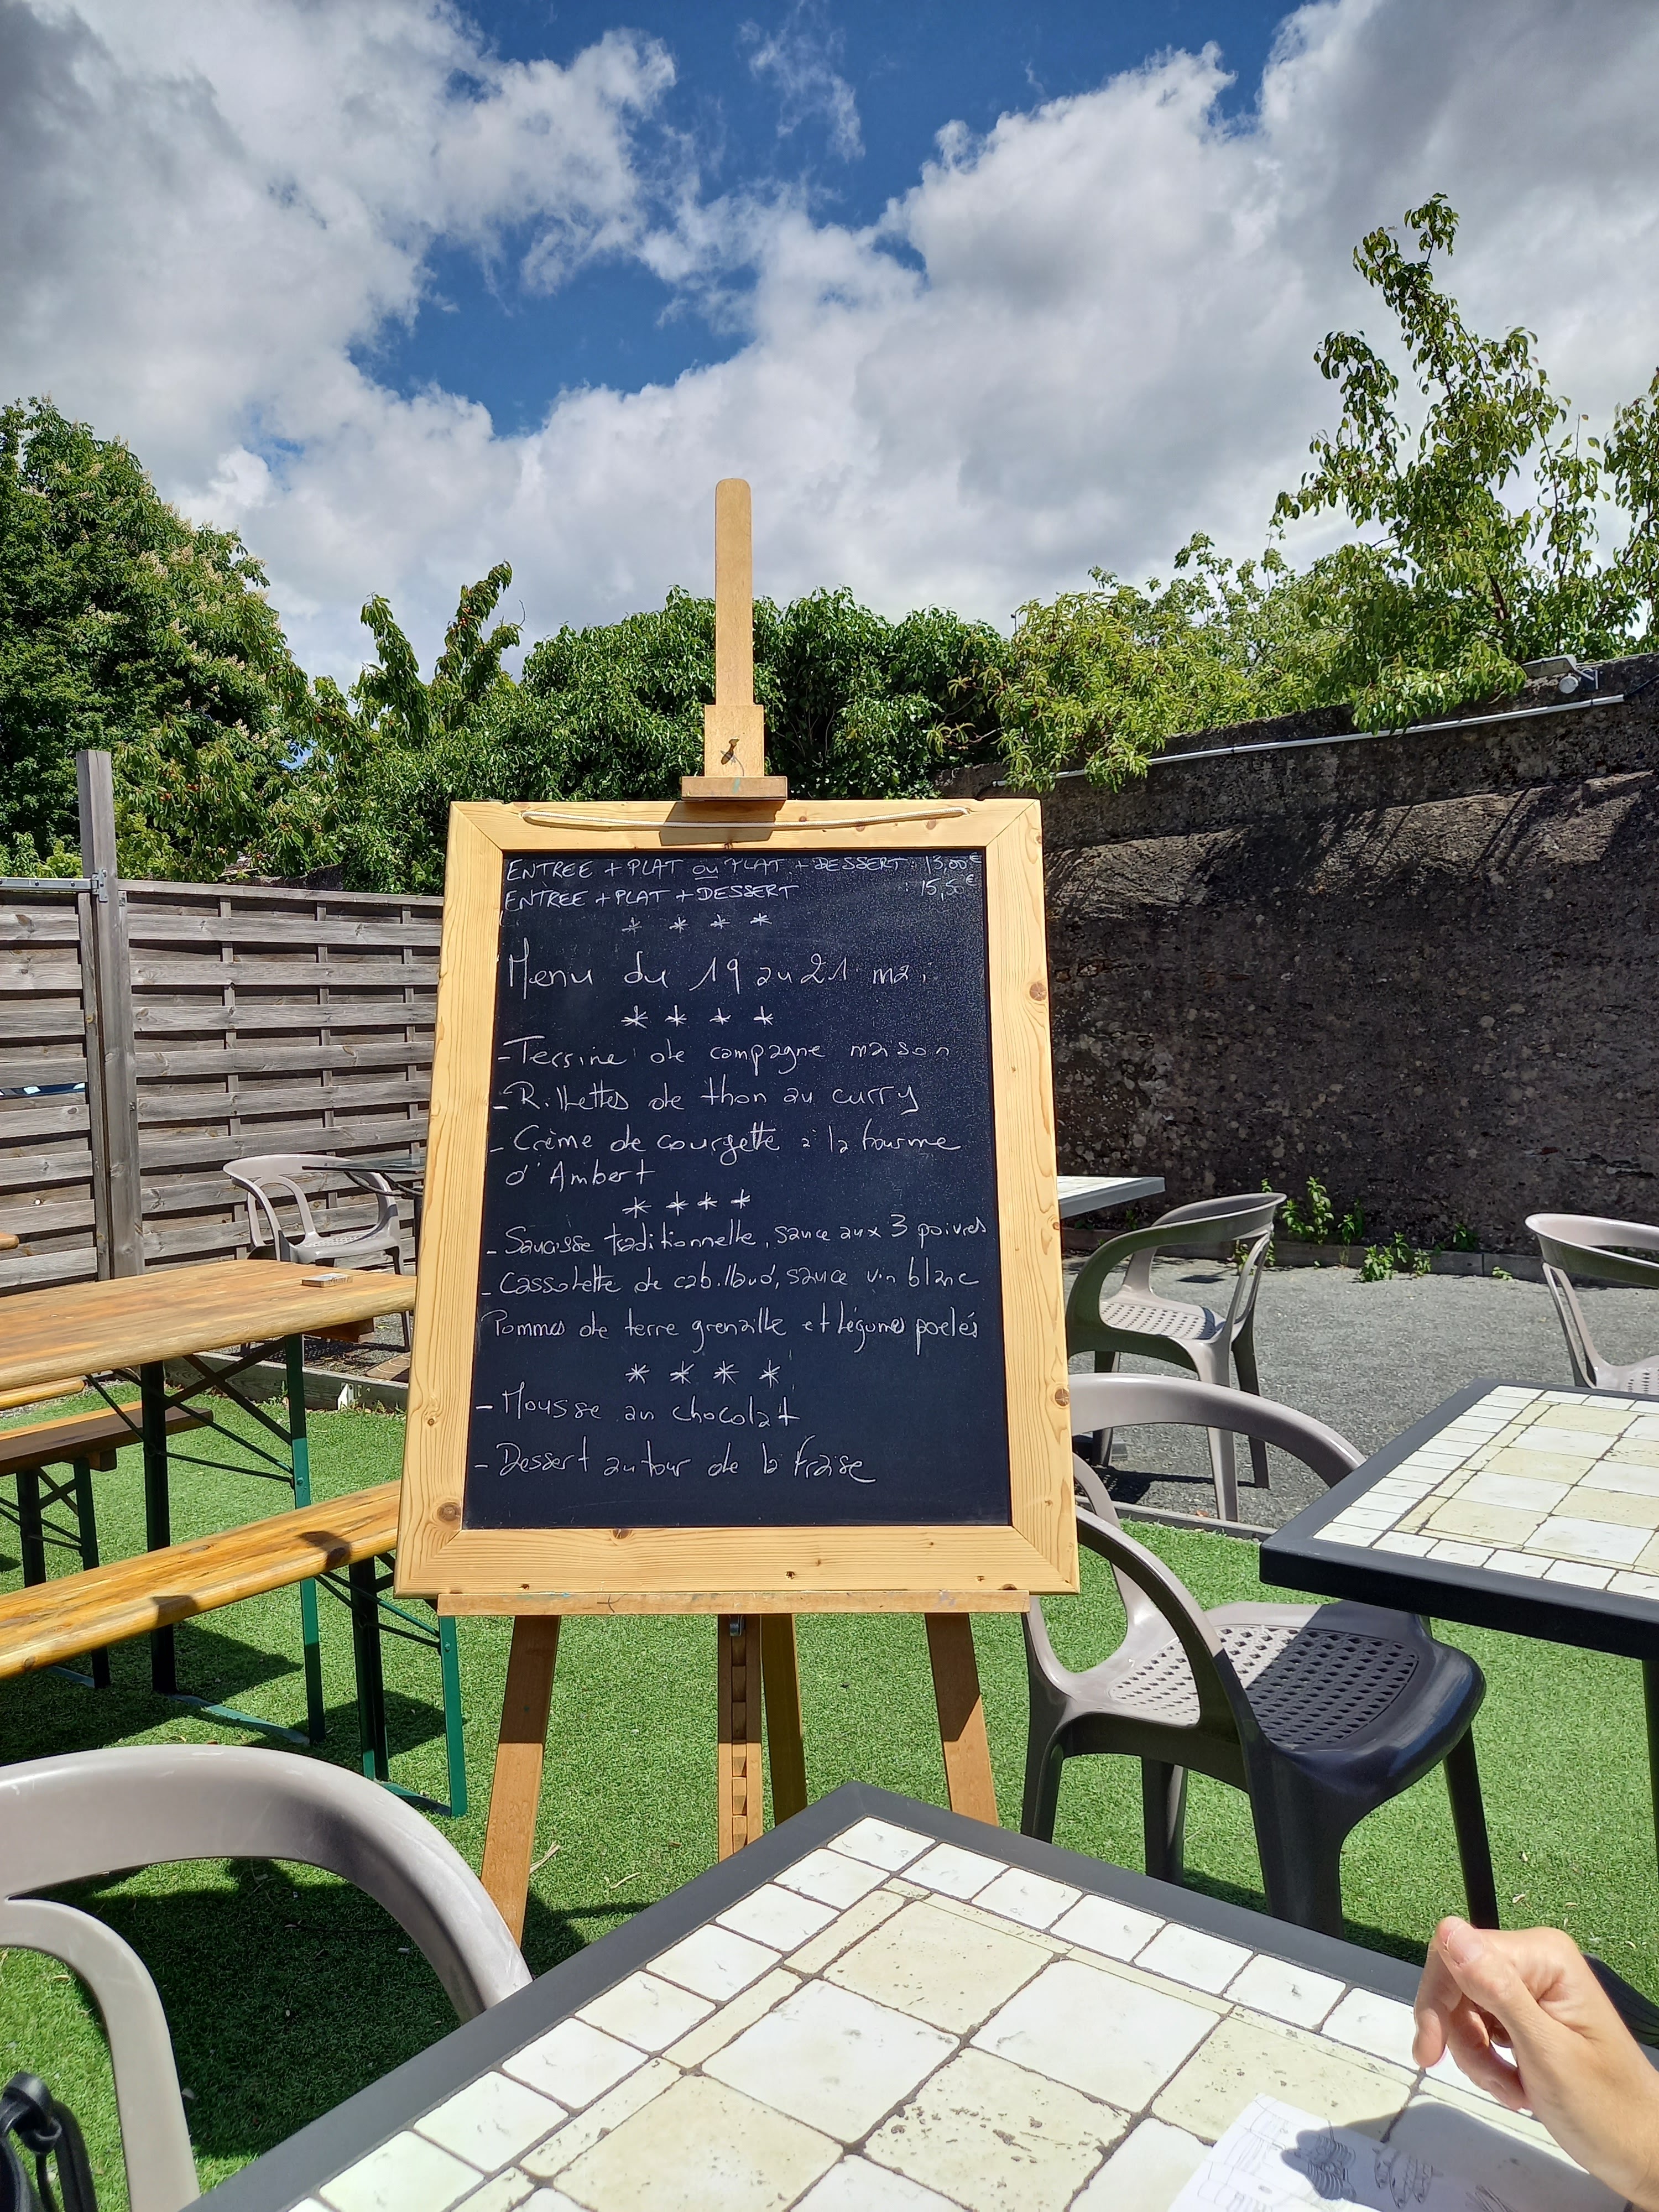 ENTREE + PLAT ou PLAT + DESSERT : 13,00€
ENTREE + PLAT + DESSERT : 15,50€
* * * *
Menu du 19 au 21 mai
* * * *
- Terrine de campagne maison
- Rillettes de thon au curry
- Crème de courgette à la fourme
d'Ambert
* * * *
- Saucisse traditionnelle, sauce aux 3 poivres
- Cassolette de cabillaud, sauce vin blanc
Pommes de terre grenaille et légumes poelés
* * * *
- Mousse au chocolat
- Dessert autour de la fraise